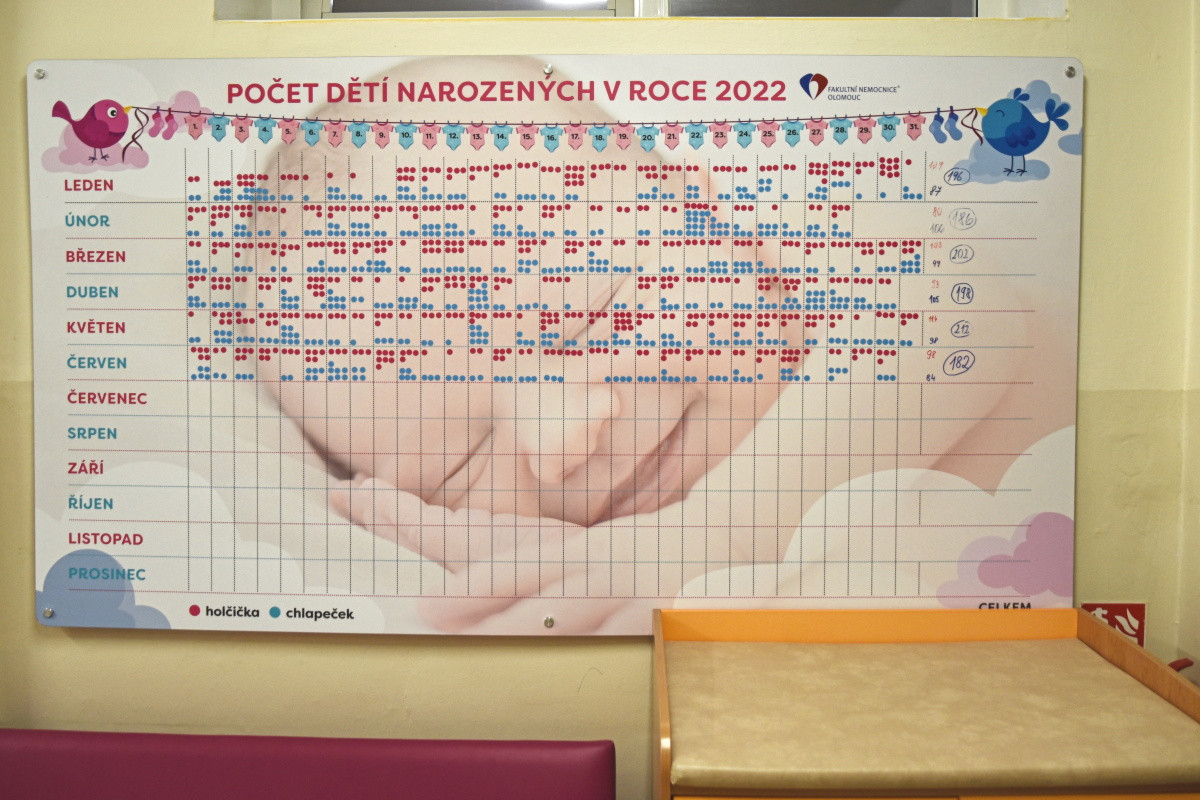 POČET DĚTÍ NAROZENÝCH V ROCE 2022
FAKULTNÍ NEMOCNICE
OLOMOUC
1. 2. 3. 4. 5. 6. 7. 8. 9. 10. 11. 12. 13. 14. 15. 16. 17. 18. 19. 20. 21. 22. 23. 24. 25. 26. 27. 28. 29. 30. 31.
LEDEN 196
87
ÚNOR 80 186
106
BŘEZEN 103 202
99
DUBEN 93 198
105
KVĚTEN 114 212
98
ČERVEN 98 182
84
ČERVENEC
SRPEN
ZÁŘÍ
ŘÍJEN
LISTOPAD
PROSINEC
holčička chlapeček
CELKEM